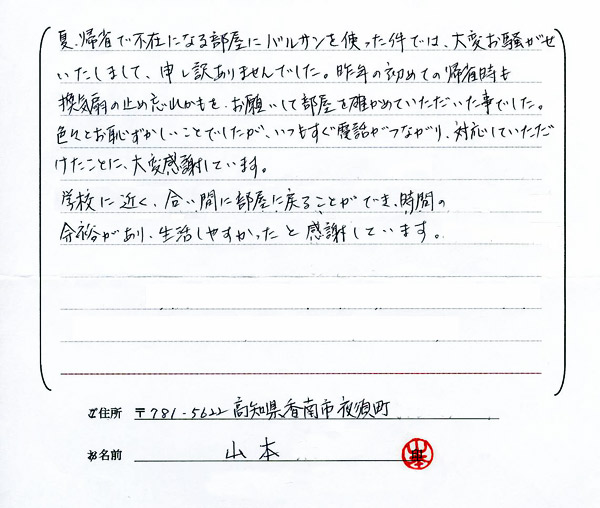 夏、帰省で不在になる部屋にバルサンを使った件では、大変お騒がせ
いたしまして、申し訳ありませんでした。昨年の初めての帰省時も
換気扇の止め忘れかもを、お願いして部屋を確かめていただいた事でした。
色々とお恥ずかしいことでしたが、いつもすぐ電話がつながり、対応していただ
けたことに、大変感謝しています。
学校に近く、合い間に部屋に戻ることができ、時間の
余裕があり、生活しやすかったと感謝しています。
ご住所 〒781-5622 高知県香南市夜須町
お名前 山本 山本